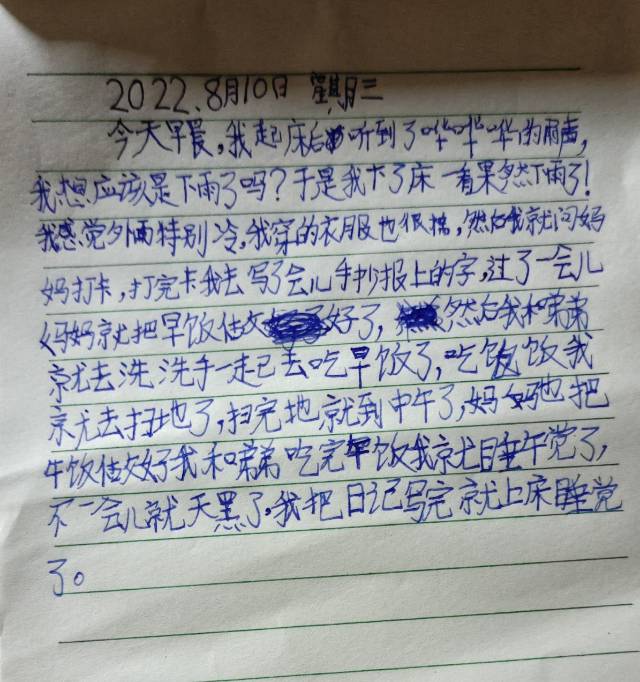 2022.8月10日 星期三
今天早晨,我起床后听到了哗哗哗的雨声,
我想应该是下雨了吗?于是我下了床一看果然下雨了!
我感觉外面特别冷,我穿的衣服也很,然后我就问妈
妈打卡,打完卡我去写了会儿手抄报上的字,过了一会儿
妈妈就把早饭做好了,然后我和弟弟
就去洗洗手一起去吃早饭了,吃饭饭我
就去扫地了,扫完地就到中午了,妈妈也把
午饭做好我和弟弟吃完午饭我就睡午觉了,
不一会儿就天黑了,我把日记写完就上床睡觉
了。